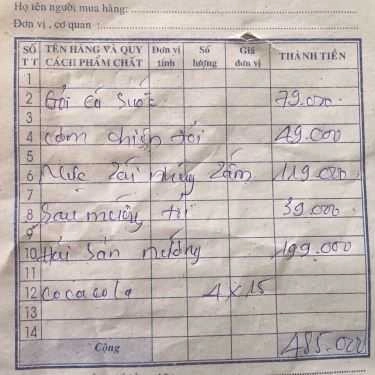 Họ tên người mua hàng:
Đơn vị, cơ quan :
SỐ TT TÊN HÀNG VÀ QUY CÁCH PHẨM CHẤT Đơn vị tính Số lượng Giá đơn vị THÀNH TIỀN
1
2 Gỏi cá Suốt 79.000
3
4 cơm chiên tỏi 49.000
5
6 Mực lá nhúng 119.000
7
8 Rau muống tỏi 39.000
9
10 Hải sản nướng 199.000
11
12 cocacola 4 x 15
13
14
Cộng 485.000